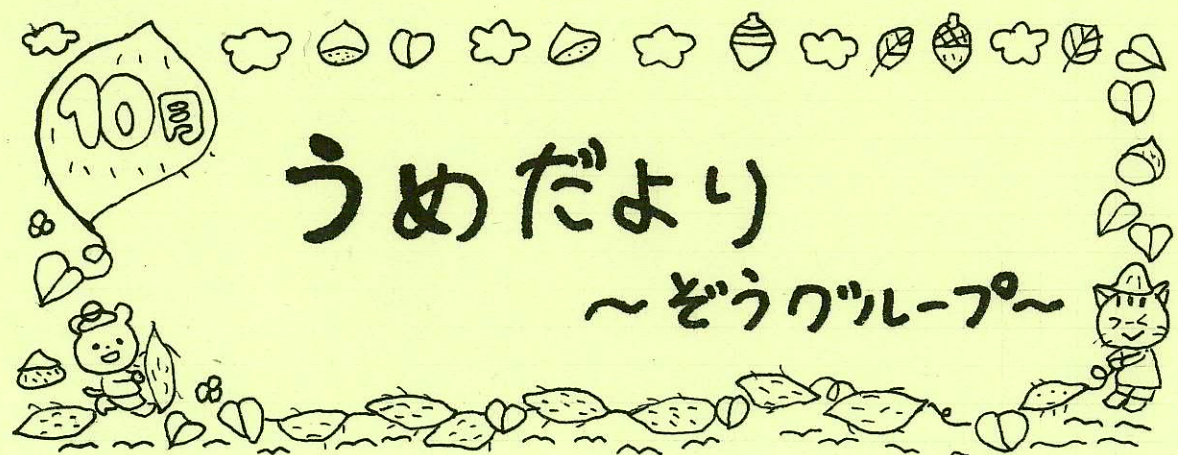 10月
うめだより
～ぞうグループ～